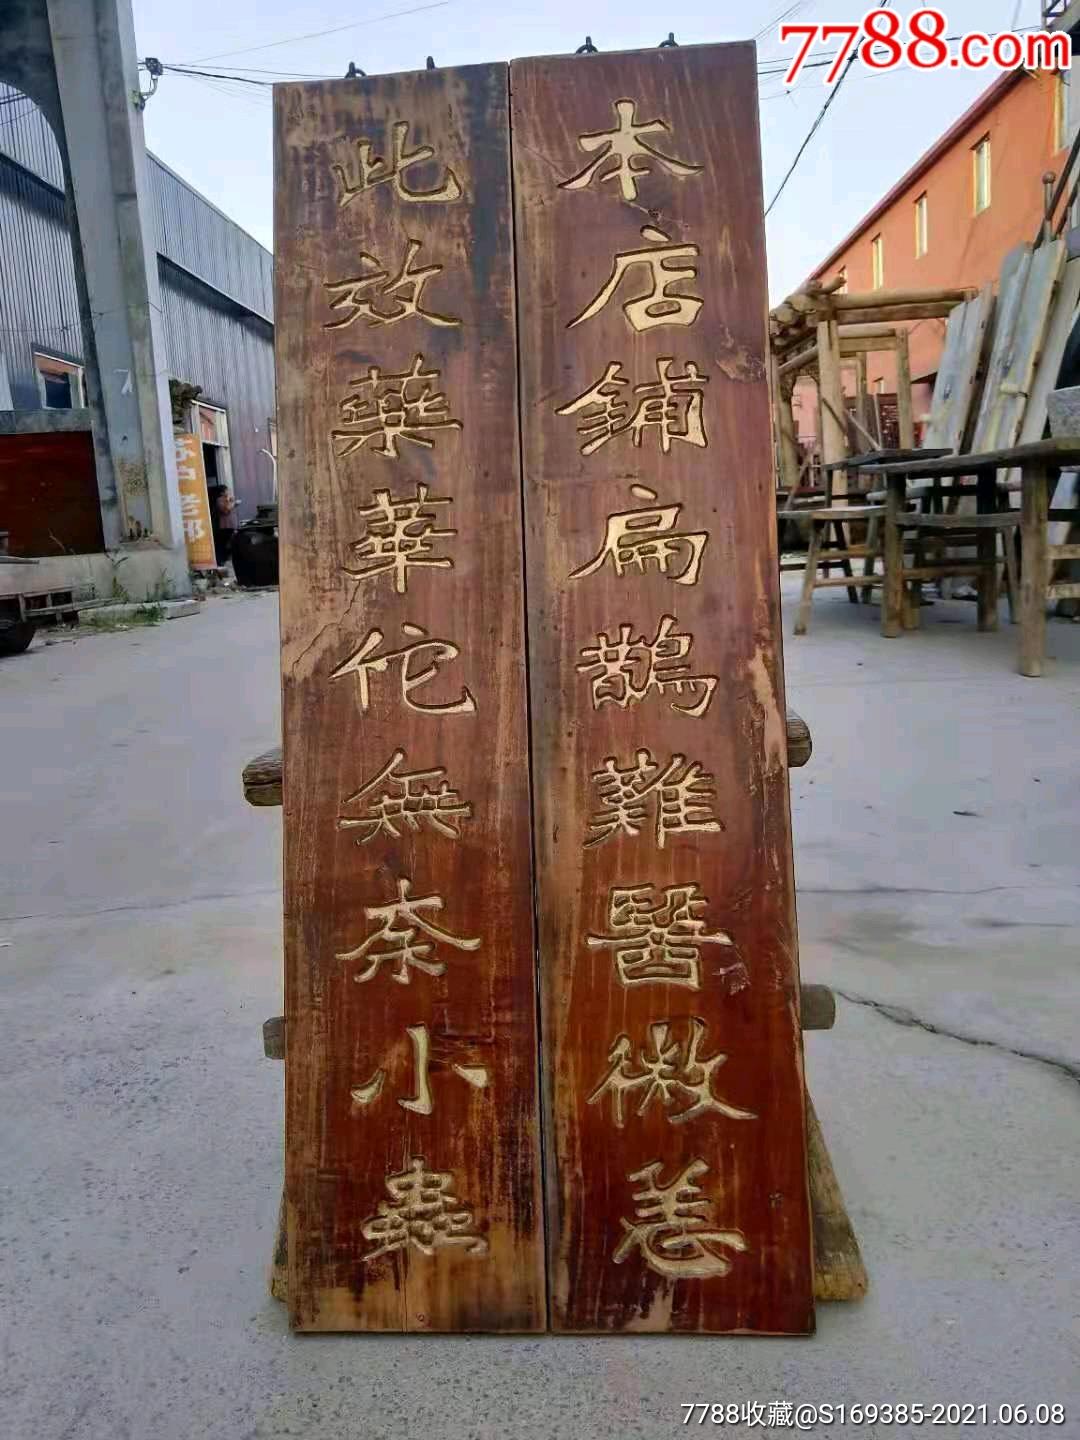 7788.com
本店鋪扁鵲難醫微恙
此效藥華佗無奈小蟲
7788收藏@S169385-2021.06.08